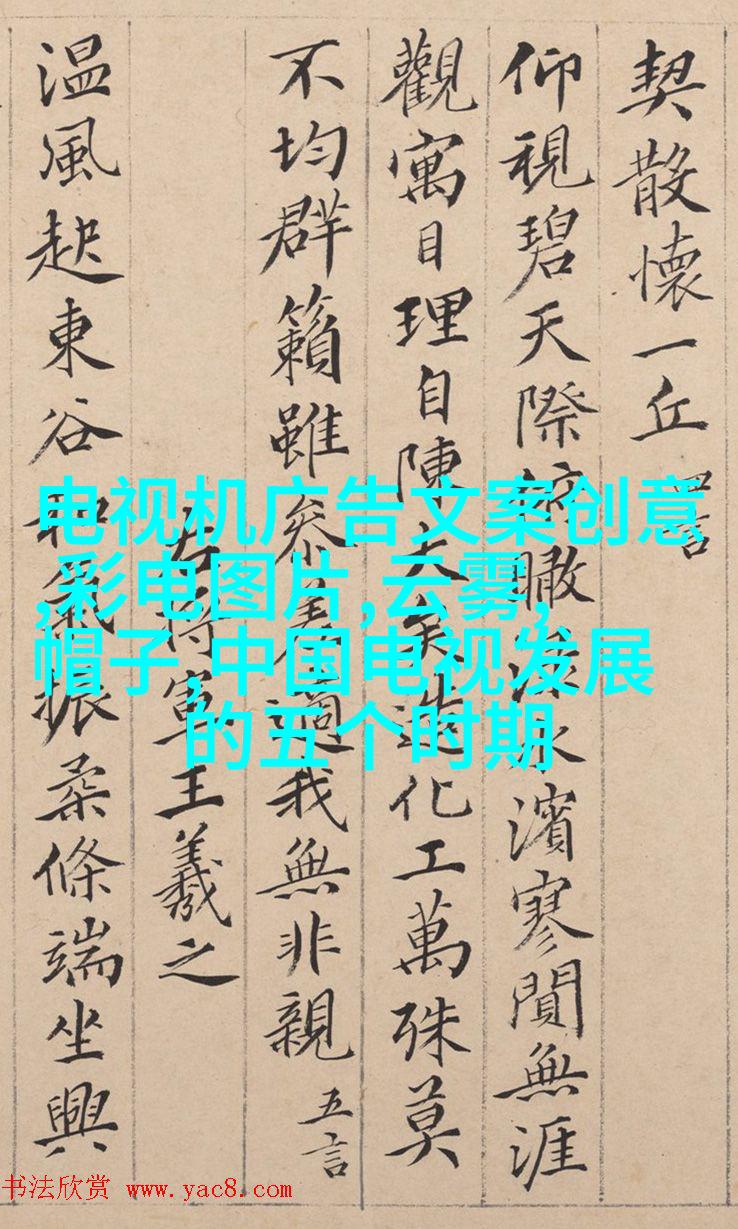 契散懷一丘 四言
仰視碧天際俯瞰淥水濱寥闃無涯
觀寓目理自陳大矣造化工萬殊莫
不均群籟雖參差適我無非親 五言
右將軍王羲之
温風起東谷和氣振柔條端坐興
电视机广告文案创意
,彩电图片,云雾,
帽子,中国电视发展
的五个时期
书法欣赏 www.yac8.com